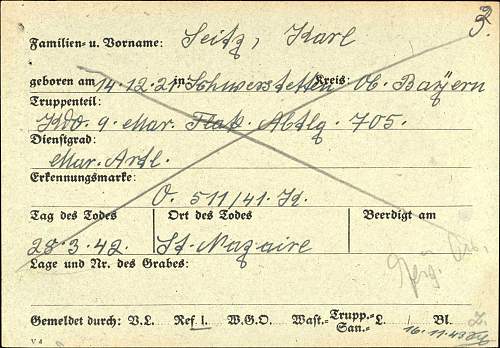 3.
Familien- u. Vorname: Seitz, Karl
geboren am 14.12.21 in: Schwerstetten Kreis: Ob. Bayern
Truppenteil:
Kdo. 9. Mar. Flak. Abtlg. 705.
Dienstgrad:
Mar. Artl.
Erkennungsmarke:
O. 511/41. K.
Tag des Todes Ort des Todes Beerdigt am
28.3.42. St. Nazaire
Lage und Nr. des Grabes:
Gemeldet durch: V.L. Ref 1. W.G.O. Wast.- Trupp.- San.- L. / Bl.
16.11.43
V 4